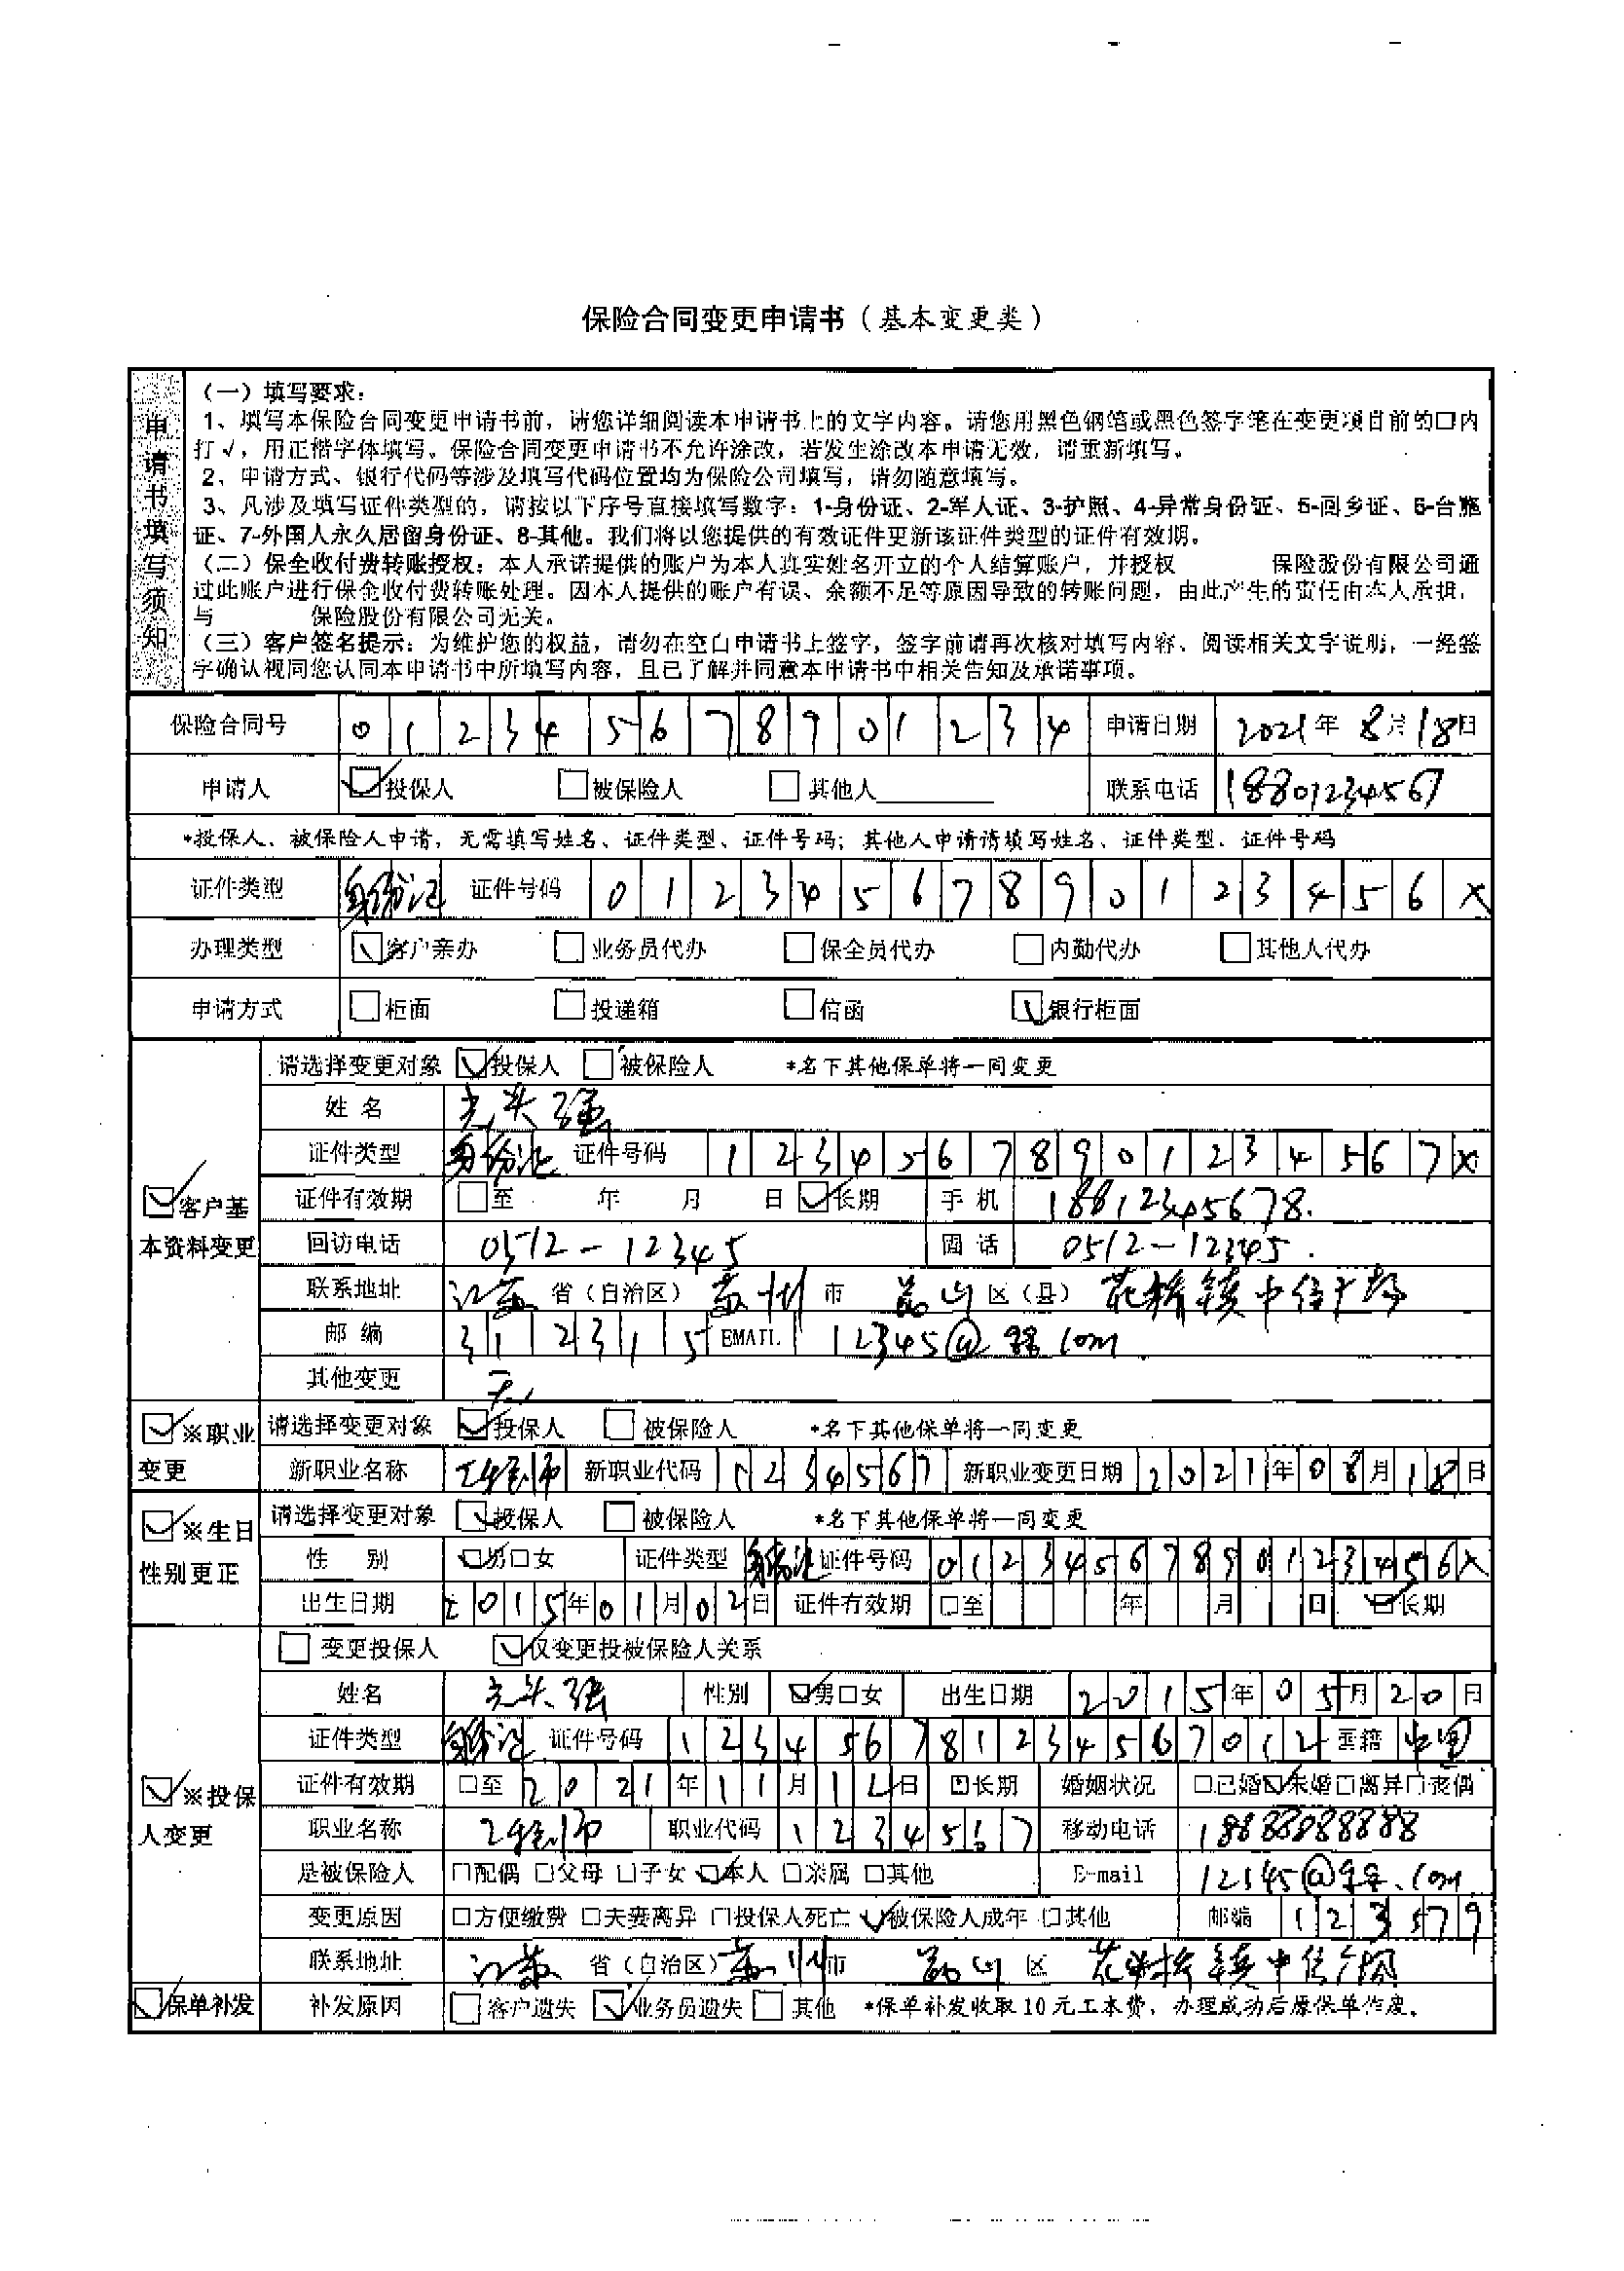 保险合同变更申请书（基本变更类）
申请书填写须知
（一）填写要求：
1、填写本保险合同变更申请书前，请您详细阅读本申请书上的文字内容。请您用黑色钢笔或黑色签字笔在变更项目前的口内
打√，用正楷字体填写。保险合同变更申请书不允许涂改，若发生涂改本申请无效，请重新填写。
2、申请方式、银行代码等涉及填写代码位置均为保险公司填写，请勿随意填写。
3、凡涉及填写证件类型的，请按以下序号直接填写数字：1-身份证、2-军人证、3-护照、4-异常身份证、5-回乡证、6-台胞
证、7-外国人永久居留身份证、8-其他。我们将以您提供的有效证件更新该证件类型的证件有效期。
（二）保全收付费转账授权：本人承诺提供的账户为本人真实姓名开立的个人结算账户，并授权 保险股份有限公司通
过此账户进行保全收付费转账处理。因本人提供的账户有误、余额不足等原因导致的转账问题，由此产生的责任由本人承担，
与 保险股份有限公司无关。
（三）客户签名提示：为维护您的权益，请勿在空白申请书上签字，签字前请再次核对填写内容、阅读相关文字说明，一经签
字确认视同您认同本申请书中所填写内容，且已了解并同意本申请书中相关告知及承诺事项。
保险合同号 012345678901234 申请日期 2021年8月18日
申请人 ☑投保人 □被保险人 □其他人 联系电话 18801234567
*投保人、被保险人申请，无需填写姓名、证件类型、证件号码；其他人申请请填写姓名、证件类型、证件号码
证件类型 身份证 证件号码 01234567890123456X
办理类型 ☑客户亲办 □业务员代办 □保全员代办 □内勤代办 □其他人代办
申请方式 □柜面 □投递箱 □信函 ☑银行柜面
☑客户基本资料变更
请选择变更对象 ☑投保人 □被保险人 *名下其他保单将一同变更
姓名 光头强
证件类型 身份证 证件号码 12345678901234567X
证件有效期 □至 年 月 日 ☑长期 手机 18812345678.
回访电话 0512-12345 固话 0512-12345.
联系地址 江苏 省（自治区） 苏州 市 昆山 区（县） 花桥镇中信广场
邮编 312315 EMAIL 12345@qq.com
其他变更 无
☑※职业变更
请选择变更对象 ☑投保人 □被保险人 *名下其他保单将一同变更
新职业名称 工程师 新职业代码 1234567 新职业变更日期 2021年08月18日
☑※生日性别更正
请选择变更对象 ☑投保人 □被保险人 *名下其他保单将一同变更
性别 ☑男□女 证件类型 身份证 证件号码 01234567890123456X
出生日期 2015年01月02日 证件有效期 □至 年 月 日 ☑长期
☑※投保人变更
□变更投保人 ☑仅变更投被保险人关系
姓名 光头强 性别 ☑男□女 出生日期 2015年05月20日
证件类型 身份证 证件号码 123456781234567012 国籍 中国
证件有效期 □至 2021年11月12日 □长期 婚姻状况 □已婚☑未婚□离异□丧偶
职业名称 工程师 职业代码 1234567 移动电话 18888088888
是被保险人 □配偶 □父母 □子女 ☑本人 □亲属 □其他 E-mail 12345@qq.com
变更原因 □方便缴费 □夫妻离异 □投保人死亡 ☑被保险人成年 □其他 邮编 123579
联系地址 江苏 省（自治区） 苏州 市 昆山 区 花桥镇中信广场
☑保单补发 补发原因 □客户遗失 ☑业务员遗失 □其他 *保单补发收取10元工本费，办理成功后原保单作废。